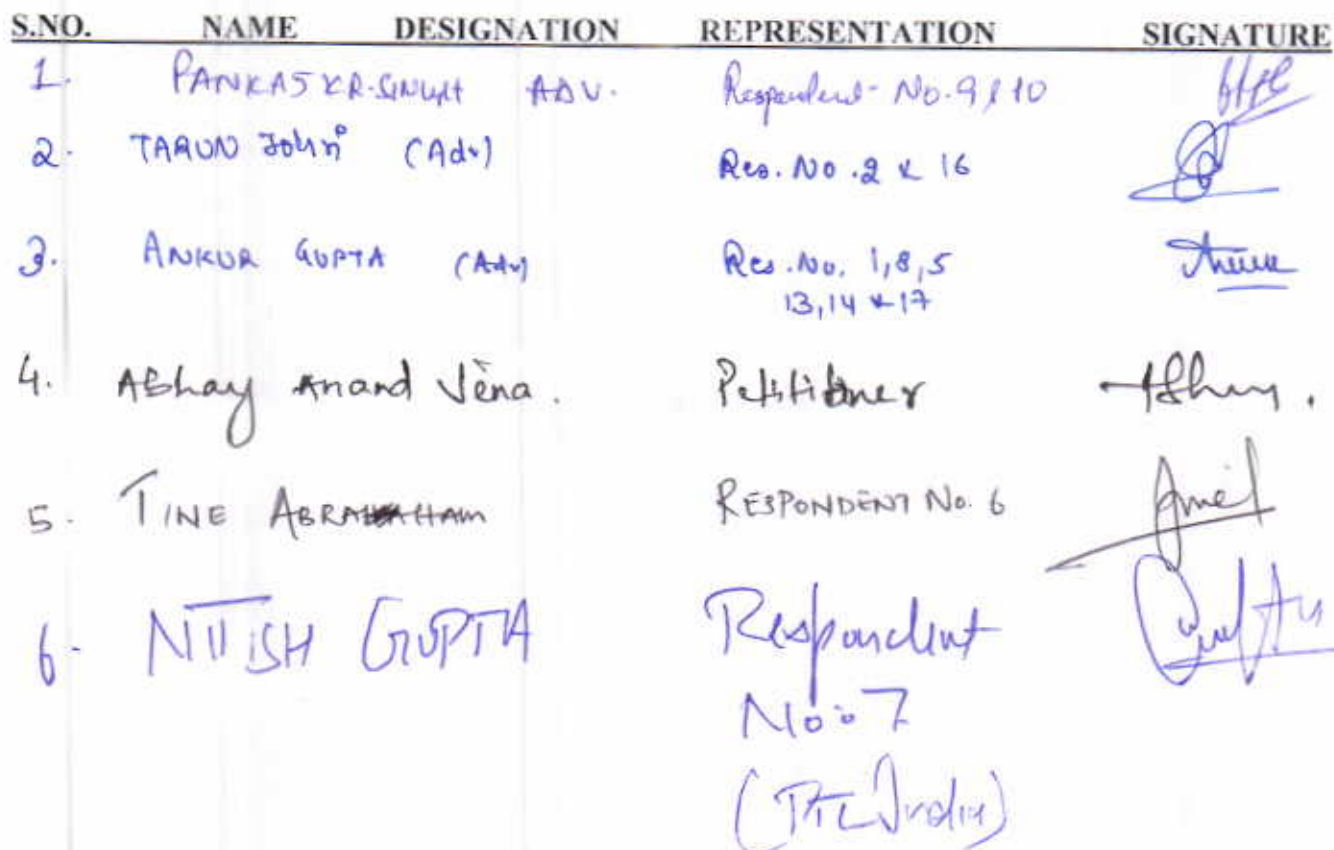 S.NO. NAME DESIGNATION REPRESENTATION SIGNATURE
1. PANKAJ KR. SINGH ADV. Respondent - No. 9 & 10
2. TARUN Johri (Adv) Res. No. 2 & 16
3. ANKUR GUPTA (Adv) Res. No. 1, 8, 5
13, 14 & 17
4. Abhay Anand Jena. Petitioner
5. TINE ABRAHAM RESPONDENT No. 6
6- NITISH GUPTA Respondent
No: 7
(PTC India)